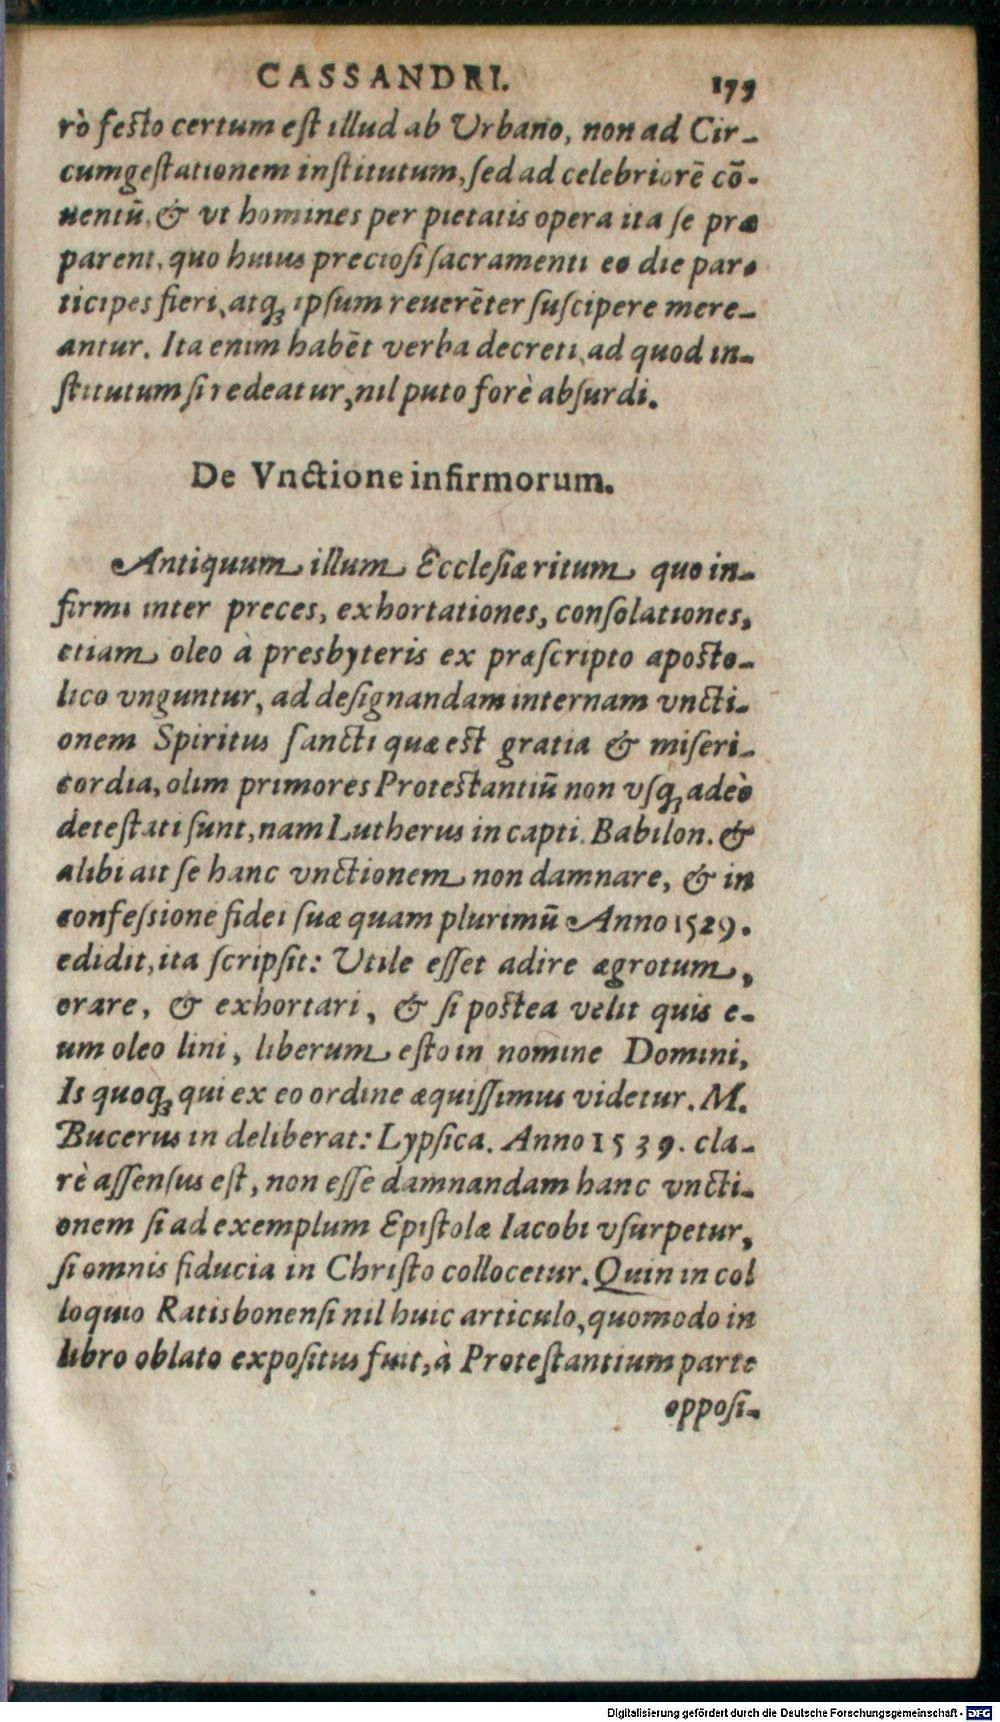 CASSANDRI. 175
rò festo certum est illud ab Vrbano, non ad Cir-
cumgestationem institutum, sed ad celebriorē cō-
uentū, & vt homines per pietatis opera ita se præ
parent, quo huius preciosi sacramenti eo die par-
ticipes fieri, atq; ipsum reuerēter suscipere mere-
antur. Ita enim habēt verba decreti, ad quod in-
stitutum si redeatur, nil puto forè absurdi.
De Vnctione infirmorum.
Antiquum illum Ecclesiæ ritum quo in-
firmi inter preces, exhortationes, consolationes,
etiam oleo à presbyteris ex præscripto aposto-
lico vnguntur, ad designandam internam vncti-
onem Spiritus sancti quæ est gratia & miseri-
cordia, olim primores Protestantiū non vsq; adeò
detestati sunt, nam Lutherus in capti. Babilon. &
alibi ait se hanc vnctionem non damnare, & in
confessione fidei suæ quam plurimū Anno 1529.
edidit, ita scripsit: Vtile esset adire ægrotum,
orare, & exhortari, & si postea velit quis e-
um oleo lini, liberum esto in nomine Domini,
Is quoq; qui ex eo ordine æquissimus videtur. M.
Bucerus in deliberat: Lypsica. Anno 1539. cla-
rè assensus est, non esse damnandam hanc vncti-
onem si ad exemplum Epistolæ Iacobi vsurpetur,
si omnis fiducia in Christo collocetur. Quin in col
loquio Ratisbonensi nil huic articulo, quomodo in
libro oblato expositus fuit, à Protestantium parte
opposi-
Digitalisierung gefördert durch die Deutsche Forschungsgemeinschaft - DFG